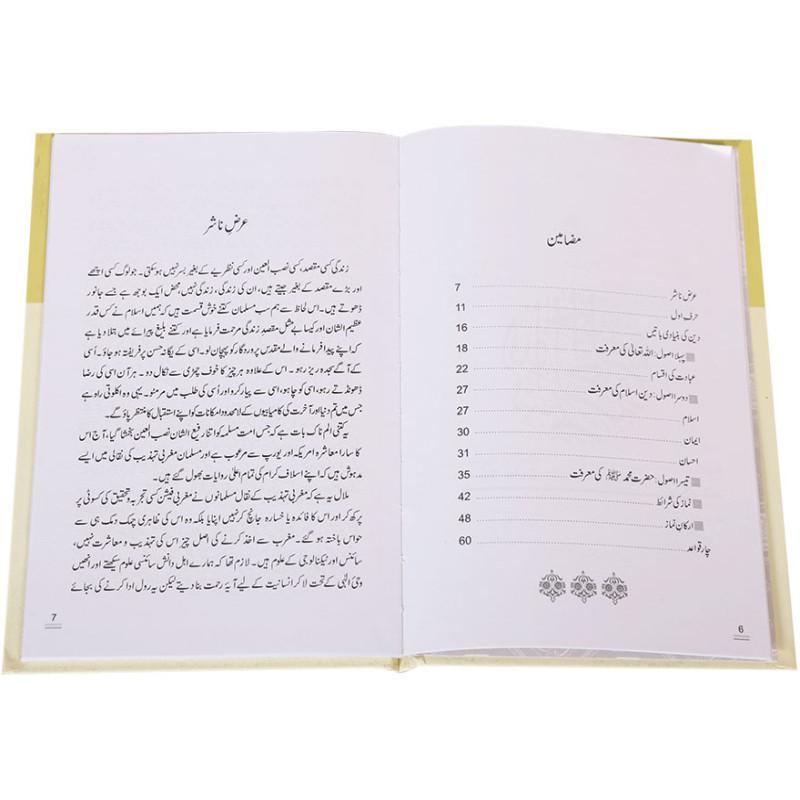 مضامین
عرض ناشر 7
حرف اول 11
دین کی بنیادی باتیں 16
پہلا اصول: اللہ تعالیٰ کی معرفت 18
عبادت کی اقسام 22
دوسرا اصول: دین اسلام کی معرفت 27
اسلام 27
ایمان 30
احسان 31
تیسرا اصول: حضرت محمد ﷺ کی معرفت 35
نماز کی شرائط 42
ارکان نماز 48
چار قواعد 60
6
عرضِ ناشر
زندگی کسی مقصد، کسی نصب العین اور کسی نظریے کے بغیر بسر نہیں ہوسکتی۔ جو لوگ کسی اچھے
اور بڑے مقصد کے بغیر جیتے ہیں، ان کی زندگی، زندگی نہیں محض ایک بوجھ ہے جسے جانور
ڈھوتے ہیں۔ اس لحاظ سے ہم سب مسلمان کتنے خوش قسمت ہیں کہ ہمیں اسلام نے کس قدر
عظیم الشان اور کیسا بے مثل مقصدِ زندگی مرحمت فرمایا ہے اور کتنے بلیغ پیرائے میں بتلا دیا ہے
کہ اپنے پیدا فرمانے والے مقدس پروردگار کو پہچان لو۔ اسی کے یگانہ حسن پر فریفتہ ہو جاؤ۔ اُسی
کے آگے سجدہ ریز رہو۔ اس کے علاوہ ہر چیز کا خوف جھڑی سے نکال دو۔ ہر آن اسی کی رضا
ڈھونڈتے رہو، اسی کو چاہو، اسی سے پیار کرو اور اُسی کی طلب میں مر مٹو۔ یہی وہ اکلوتی راہ ہے
جس میں تم دنیا اور آخرت کی کامیابیوں کے لامحدود امکانات کو اپنے استقبال کا منتظر پاؤ گے۔
یہ کتنی الم ناک بات ہے کہ جس امت مسلمہ کو اتنا رفیع الشان نصب العین بخشا گیا، آج اس
کا سارا معاشرہ امریکہ اور یورپ سے مرعوب ہے اور مسلمان مغربی تہذیب کی نقالی میں ایسے
مدہوش ہیں کہ اپنے اسلاف کرام کی تمام اعلیٰ روایات بھول گئے ہیں۔
ملال یہ ہے کہ مغربی تہذیب کے نقال مسلمانوں نے مغربی فیشن کسی تجربہ و تحقیق کی کسوٹی پر
پرکھ کر اور اس کا فائدہ یا خسارہ جانچ کر نہیں اپنایا بلکہ وہ اس کی ظاہری چمک دمک ہی سے
حواس باختہ ہو گئے۔ مغرب سے اخذ کرنے کی اصل چیز اس کی تہذیب و معاشرت نہیں،
سائنس اور ٹیکنالوجی کے علوم ہیں۔ لازم تھا کہ ہمارے اہل دانش سائنسی علوم سیکھتے اور انھیں
وحیٔ الٰہی کے تحت لا کر انسانیت کے لیے آیۂ رحمت بنا دیتے لیکن یہ رول ادا کرنے کی بجائے
7